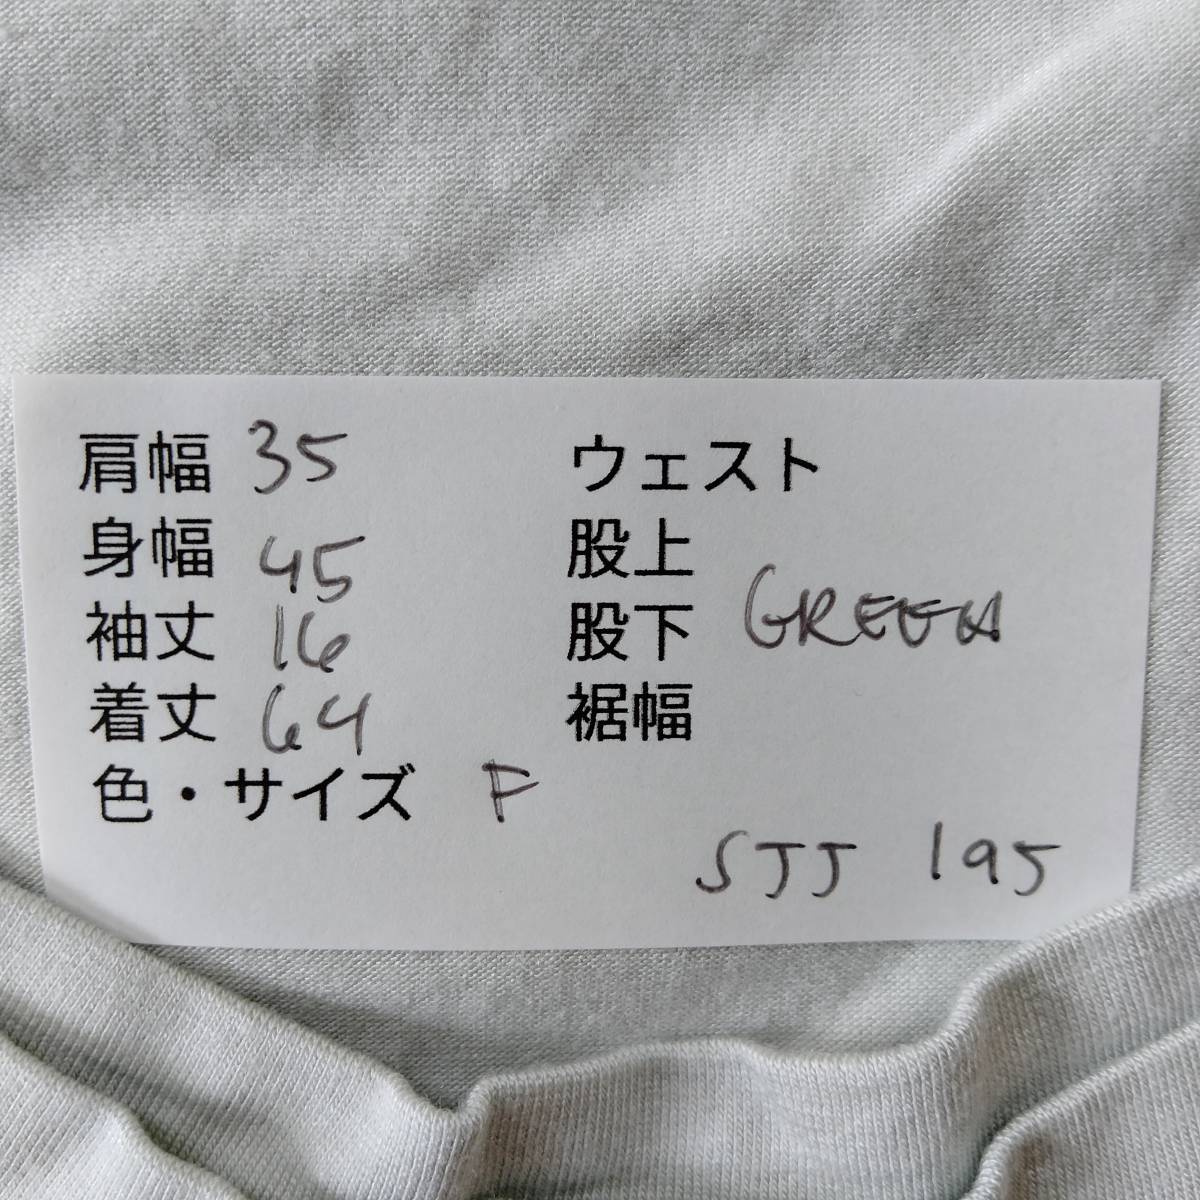 肩幅 35
身幅 45
袖丈 16
着丈 64
色・サイズ F
ウェスト
股上
股下 GREEN
裾幅
SJJ 195